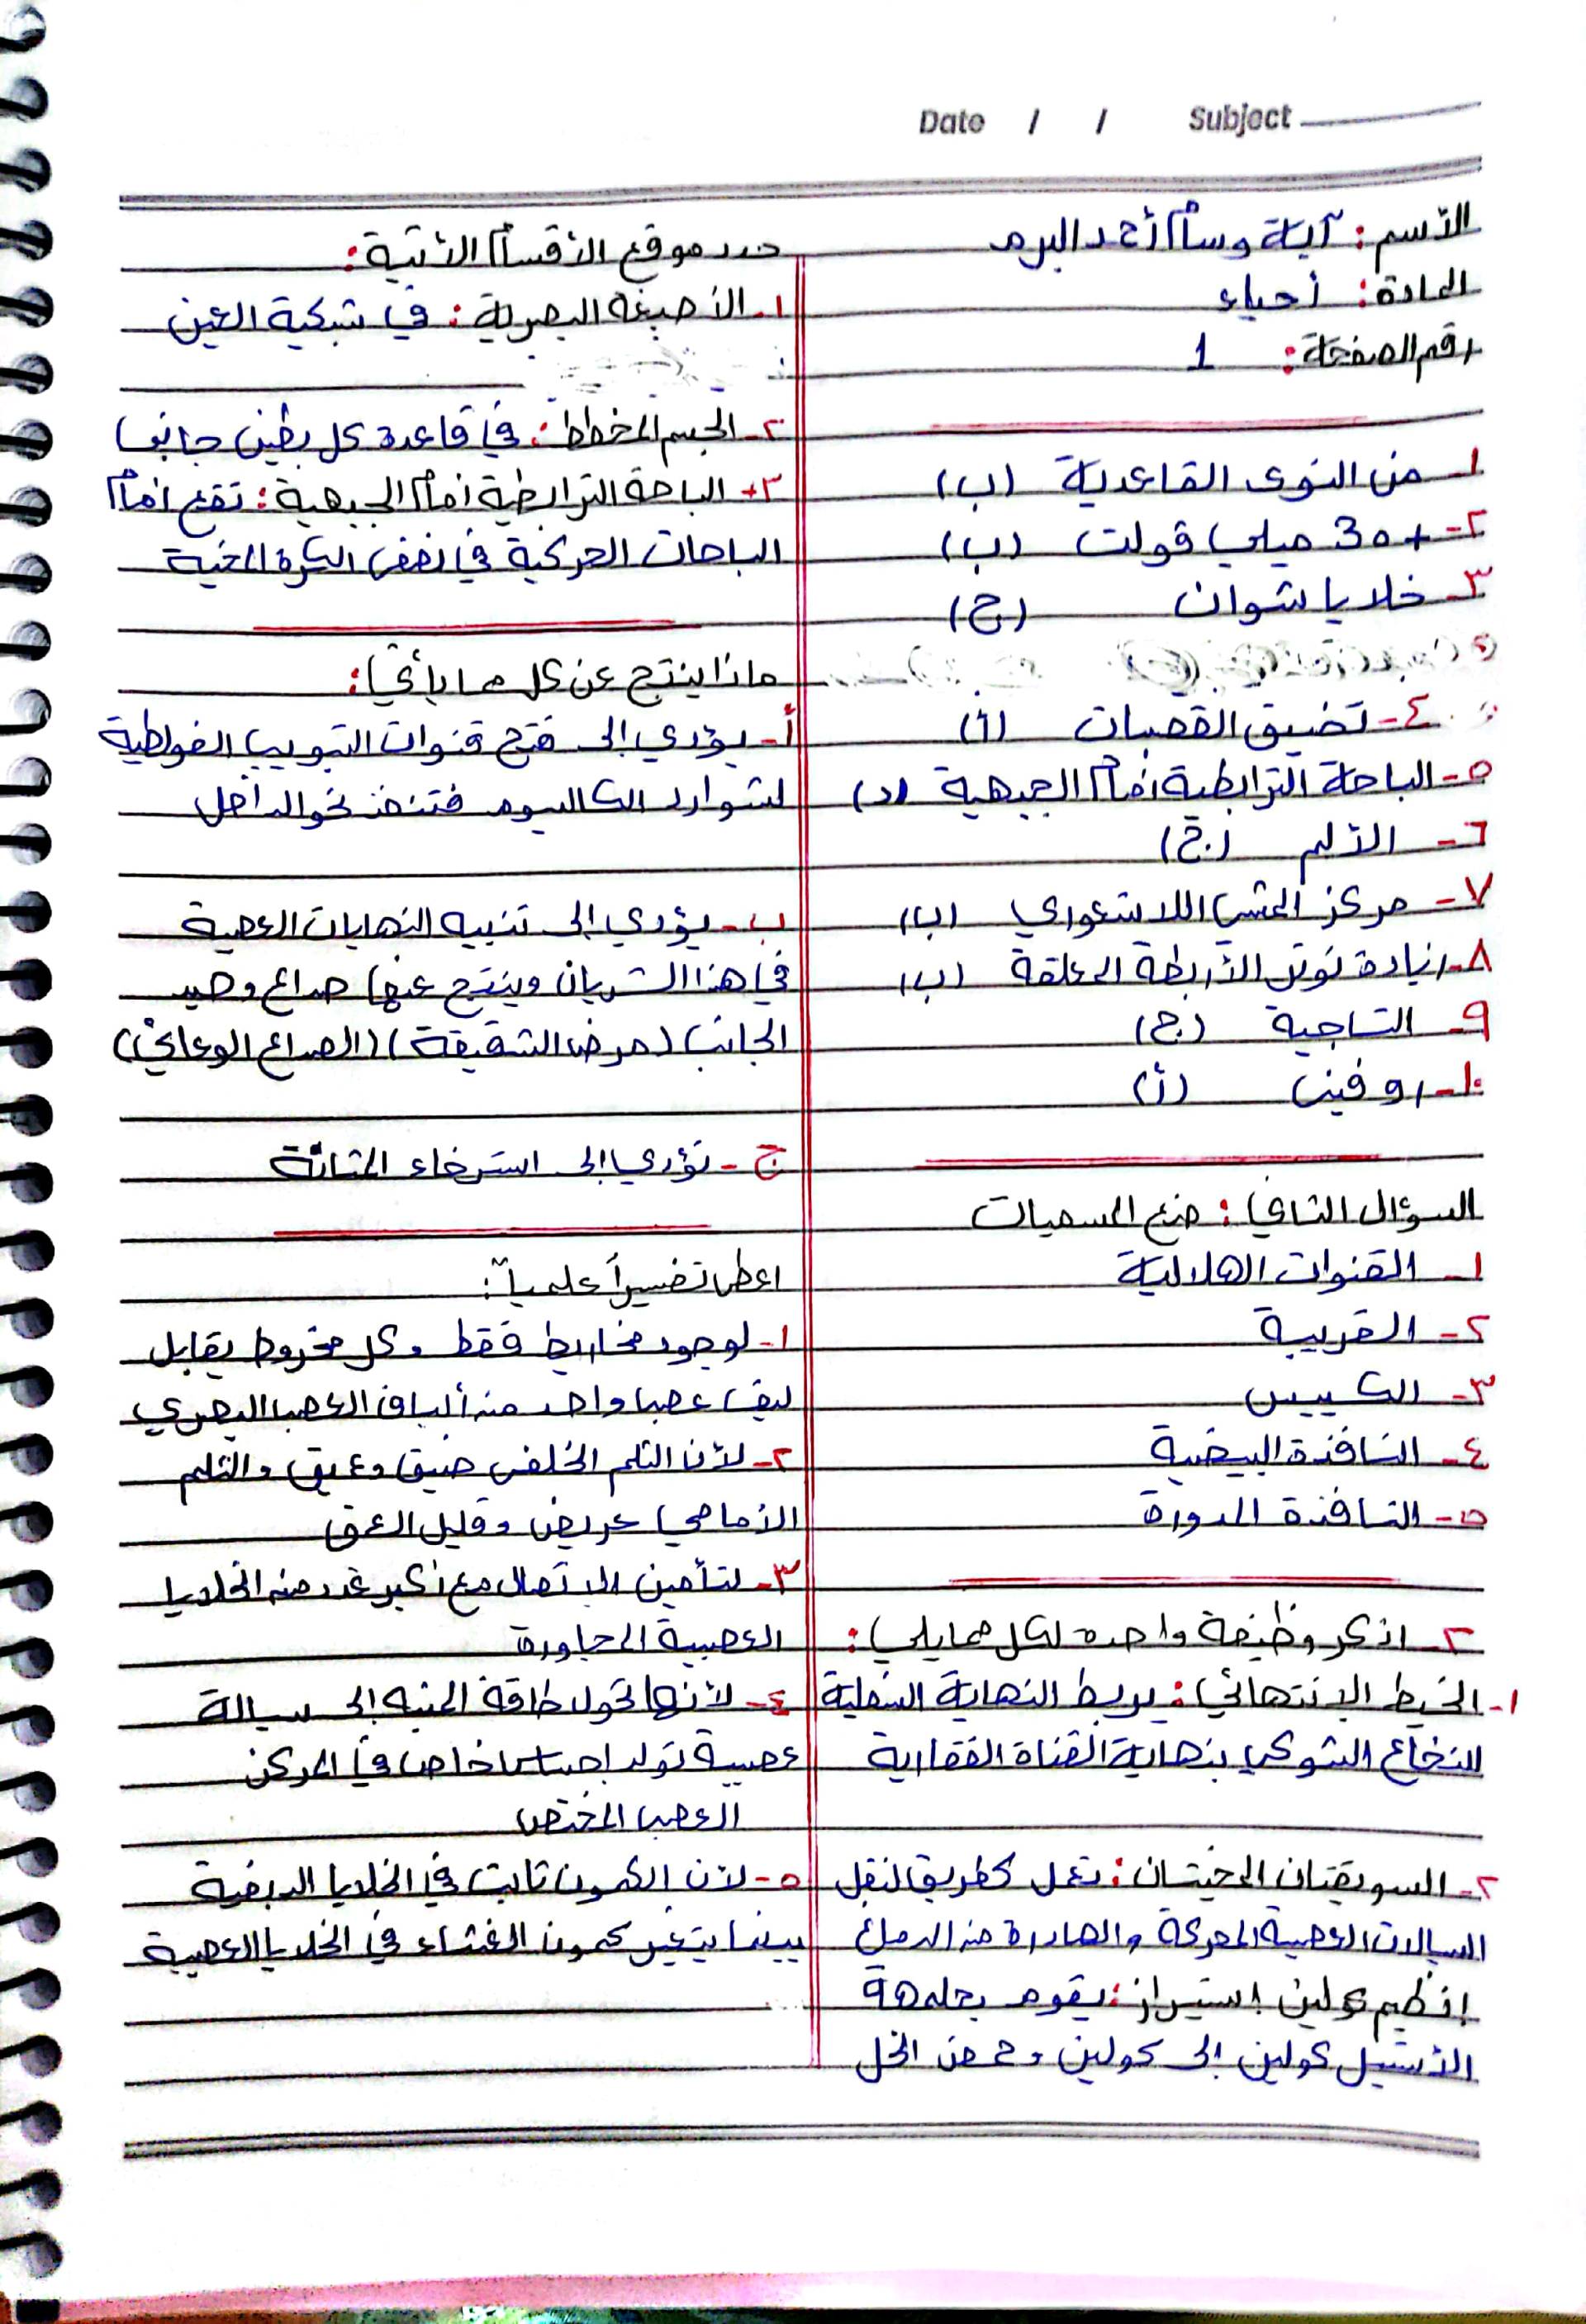 Date / / Subject
الأسم: آية وسام أحمد البرم
المادة: أحياء
رقم الصفحة: 1
١- من النوى القاعدية (ب)
٢- +30 ميلي فولت (ب)
٣- خلايا شوان (ج)
٤- تضيق القصبات (أ)
٥- الباحة الترابطية أمام الجبهية (د)
٦- الألم (ج)
٧- مركز المشي اللاشعوري (ب)
٨- زيادة توتر الأربطة المعلقة (ب)
٩- التاجية (ج)
١٠- روفيني (أ)
السؤال الثاني: ضع المسميات
١- القنوات الهلالية
٢- القريبة
٣- الكييس
٤- النافذة البيضية
٥- النافذة المدورة
٢- اذكر وظيفة واحدة لكل مما يلي:
١- الخيط الانتهائي: يربط النهاية السفلية
للنخاع الشوكي بنهاية القناة الفقارية
٢- السويقتان المخيتان: تعمل كطريق لنقل
السيالات العصبية المحركة والصادرة من الدماغ
انظيم كولين استيراز: يقوم بحلمهة
الأستيل كولين إلى كولين وحمض الخل
حدد موقع الأقسام الأتية:
١- الأصبغة البصرية: في شبكية العين
٢- الجسم المخطط: في قاعدة كل بطين جانبي
٣- الباحة الترابطية أمام الجبهية: تقع أمام
الباحات الحركية في نصفي الكرة المخية
ماذا ينتج عن كل مما يأتي:
أ- يؤدي إلى فتح قنوات التبويب الفولطية
لشوارد الكالسيوم فتنفذ نحو الداخل
ب- يؤدي إلى تنبيه النهايات العصبية
في هذا الشريان وينتج عنها صداع وحيد
الجانب (مرض الشقيقة) (الصداع الوعائي)
ج- تؤدي إلى استرخاء المثانة
اعط تفسيراً علمياً:
١- لوجود مخاريط فقط وكل مخروط يقابل
ليف عصبي واحد من ألياف العصب البصري
٢- لأن الثلم الخلفي ضيق وعميق والثلم
الأمامي عريض وقليل العمق
٣- لتأمين الاتصال مع أكبر عدد من الخلايا
العصبية المجاورة
٤- لأنها تحول طاقة المنبه إلى سيالة
عصبية تولد احساس خاص في المركز
العصبي المختص
٥- لأن الكمون ثابت في الخلايا الدبقية
بينما يتغير كمون الغشاء في الخلايا العصبية